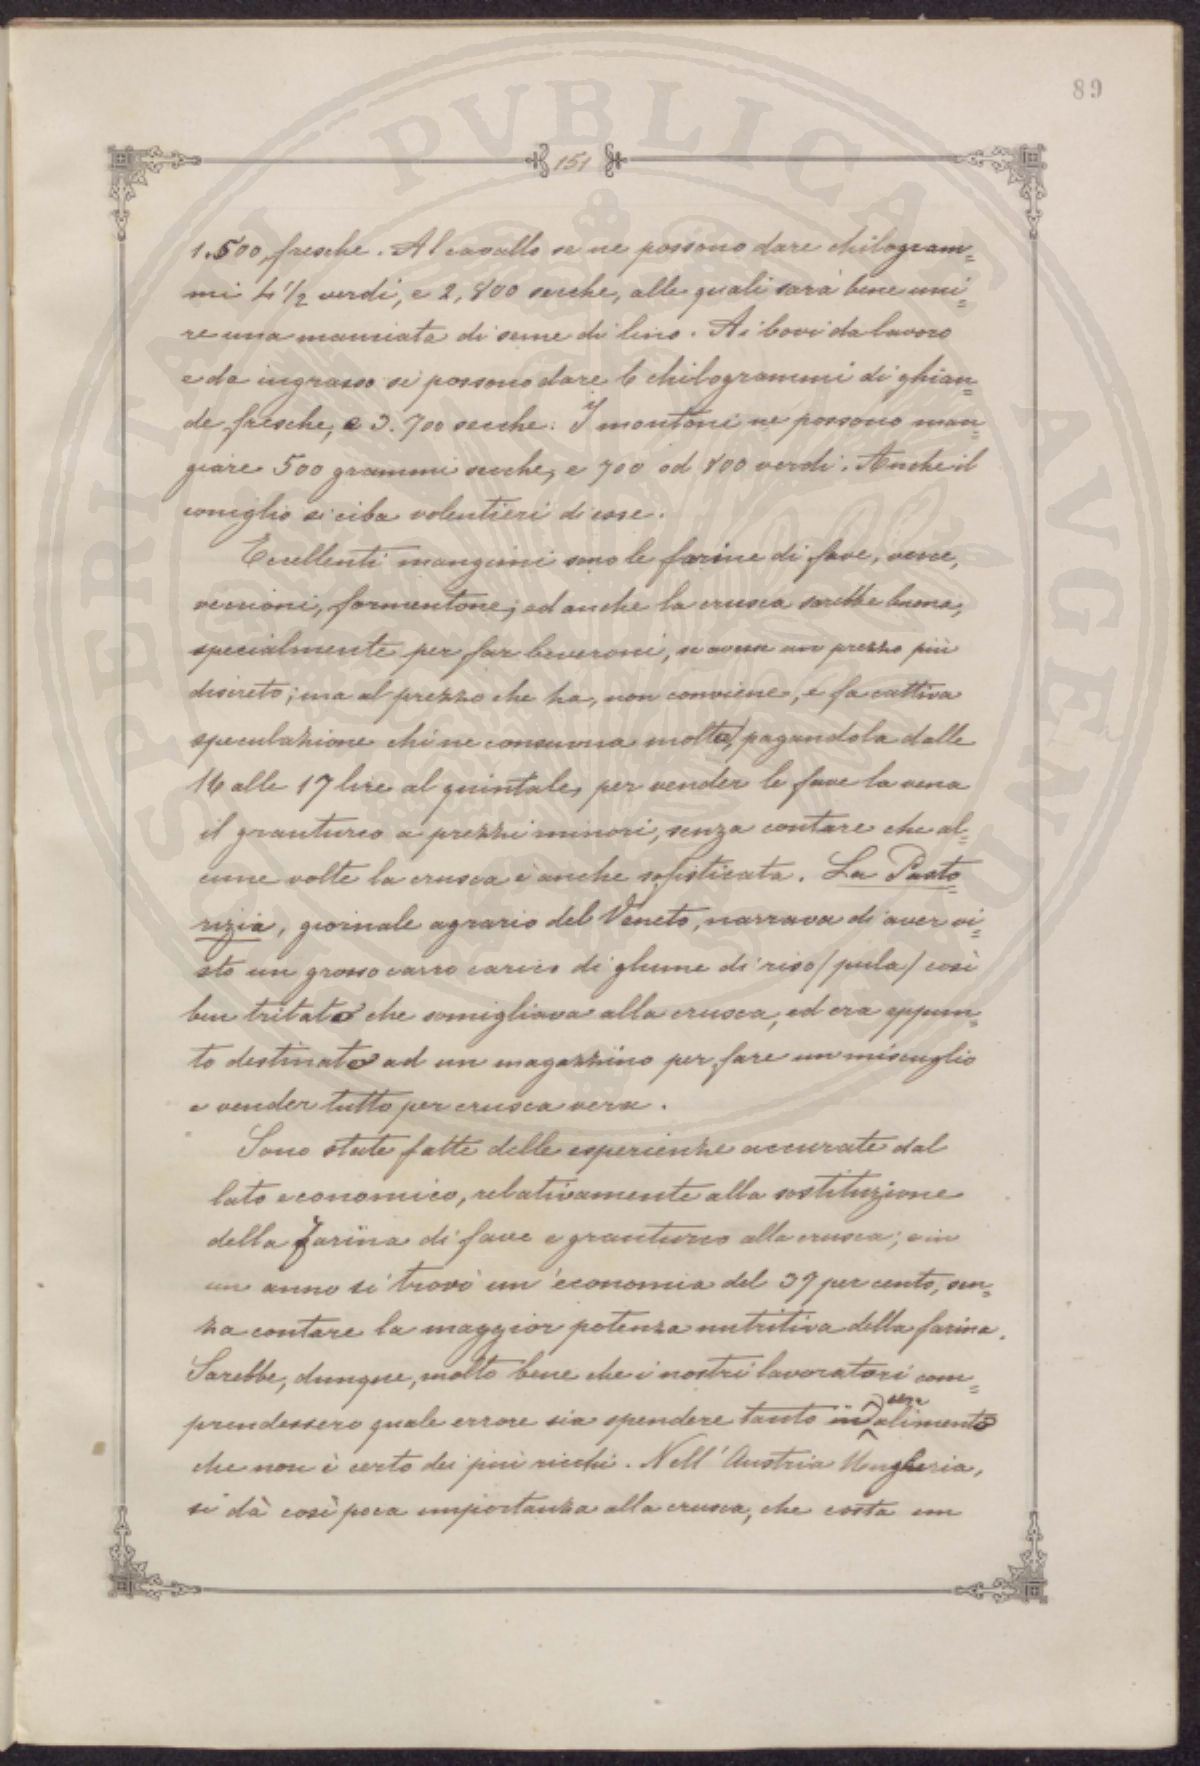 89
151
1.500 fresche. Al cavallo se ne possono dare chilogram=
mi 4 1/2 verdi, e 2,800 secche, alle quali sarà bene uni=
re una manciata di seme di lino. Ai bovi da lavoro
e da ingrasso si possono dare 6 chilogrammi di ghian=
de fresche, e 3.700 secche. I montoni ne possono man=
giare 500 grammi secche, e 700 od 800 verdi. Anche il
coniglio si ciba volentieri di esse.
Eccellenti mangimi sono le farine di fave, vecce,
veccioni, formentone; ed anche la crusca sarebbe buona,
specialmente per far beveroni, se avesse un prezzo più
discreto; ma al prezzo che ha, non conviene, e fa cattiva
speculazione chi ne consuma molta, pagandola dalle
16 alle 17 lire al quintale, per vender le fave la vena
il granturco a prezzi minori, senza contare che al=
cune volte la crusca è anche sofisticata. La Pasto=
rizia, giornale agrario del Veneto, narrava di aver vi=
sto un grosso carro carico di glume di riso (pula) così
ben tritato che somigliava alla crusca, ed era appun=
to destinato ad un magazzino per fare un miscuglio
e vender tutto per crusca vera.
Sono state fatte delle esperienze accurate dal
lato economico, relativamente alla sostituzione
della farina di fave e granturco alla crusca; e in
un anno si trovò un'economia del 37 per cento, sen=
za contare la maggior potenza nutritiva della farina.
Sarebbe, dunque, molto bene che i nostri lavoratori com=
prendessero quale errore sia spendere tanto in alimento
che non è certo dei più ricchi. Nell'Austria Ungheria,
si dà così poca importanza alla crusca, che costa un
PVBLICAE
AVGENDAE